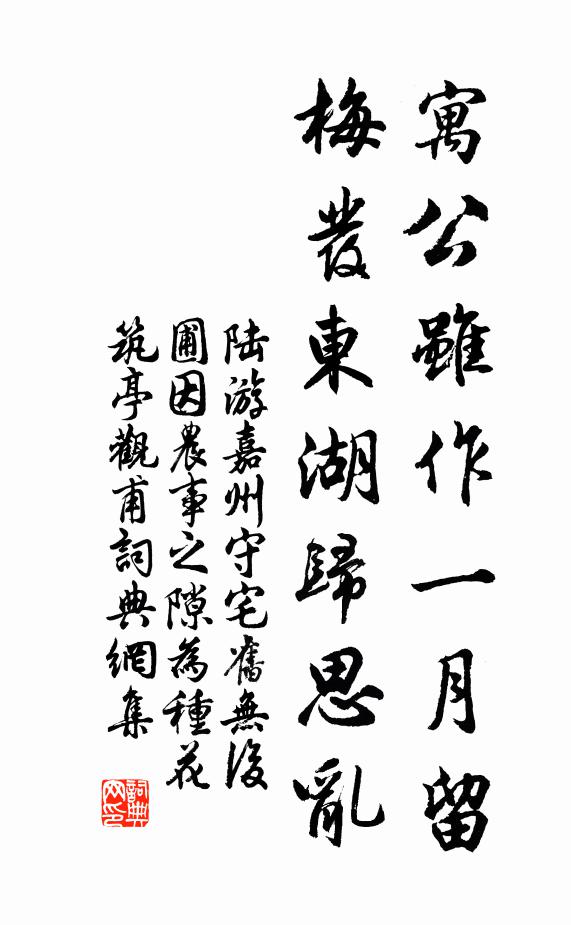 寓公雖作一月留
梅發東湖歸思亂
陆游嘉州守宅舊無後
圃因農事之隙為種花
筑亭觀甫詞典網集
詞典网印